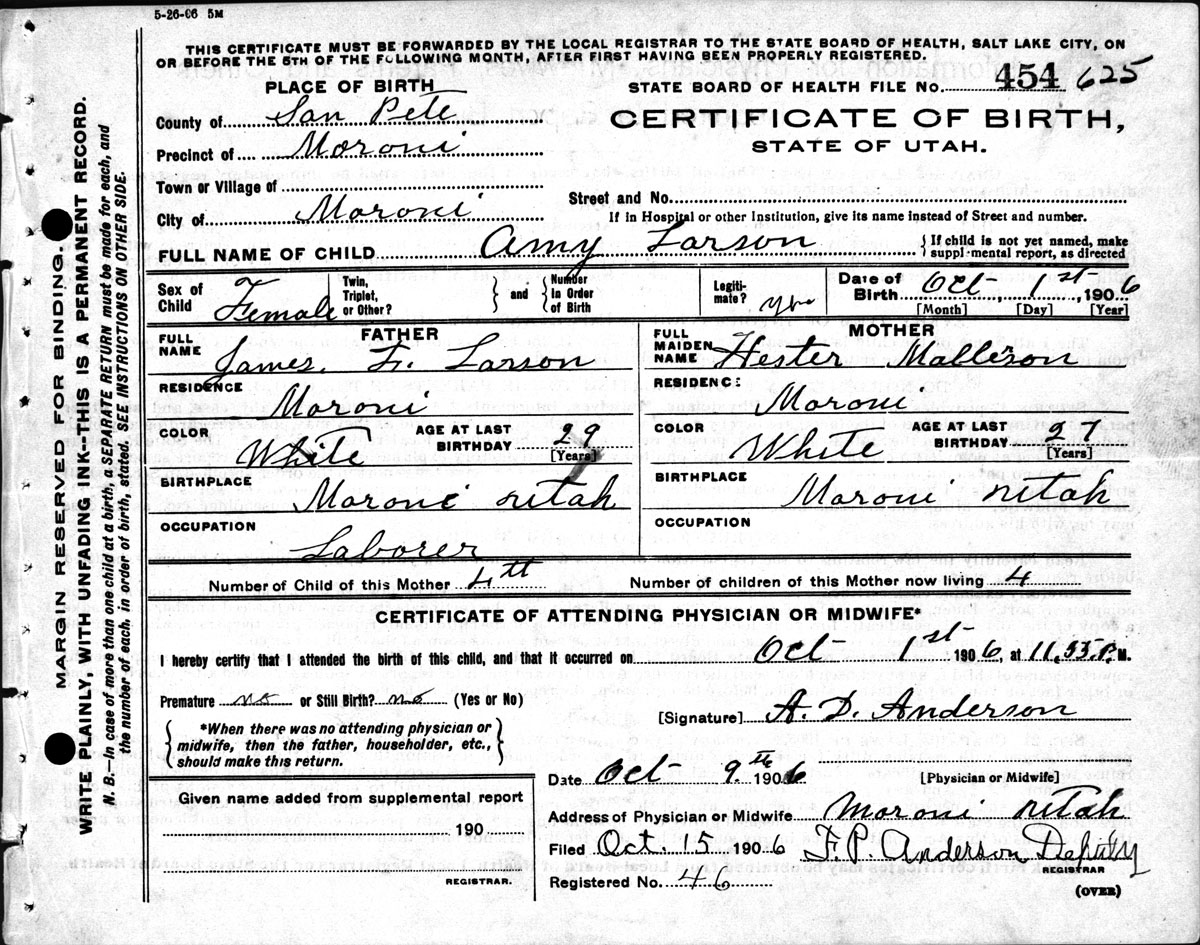 5-26-06 5M
THIS CERTIFICATE MUST BE FORWARDED BY THE LOCAL REGISTRAR TO THE STATE BOARD OF HEALTH, SALT LAKE CITY, ON
OR BEFORE THE 5TH OF THE FOLLOWING MONTH, AFTER FIRST HAVING BEEN PROPERLY REGISTERED.
PLACE OF BIRTH
STATE BOARD OF HEALTH FILE No. 454 625
County of San Pete
CERTIFICATE OF BIRTH,
Precinct of Moroni
STATE OF UTAH.
Town or Village of
Street and No.
City of Moroni
If in Hospital or other Institution, give its name instead of Street and number.
FULL NAME OF CHILD Amy Larson { If child is not yet named, make
suppl·mental report, as directed
Sex of Child Female Twin, Triplet, or Other? } and { Number In Order of Birth Legiti-mate? yes Date of Birth Oct, 1st, 1906
[Month] [Day] [Year]
FATHER
MOTHER
FULL NAME James. F. Larson
FULL MAIDEN NAME Hester Mallison
RESIDENCE Moroni
RESIDENC: Moroni
COLOR White AGE AT LAST BIRTHDAY 29 [Years]
COLOR White AGE AT LAST BIRTHDAY 27 [Years]
BIRTHPLACE Moroni utah
BIRTHPLACE Moroni utah
OCCUPATION Laborer
OCCUPATION
Number of Child of this Mother 4th Number of children of this Mother now living 4
CERTIFICATE OF ATTENDING PHYSICIAN OR MIDWIFE*
I hereby certify that I attended the birth of this child, and that it occurred on Oct 1st 1906, at 11,55 P. M.
Premature no or Still Birth? no (Yes or No)
[Signature] A. D. Anderson
{ *When there was no attending physician or
midwife, then the father, householder, etc.,
should make this return. }
Date Oct 9th 1906 [Physician or Midwife]
Given name added from supplemental report
190
REGISTRAR.
Address of Physician or Midwife Moroni utah
Filed Oct. 15 1906 F. P. Anderson Deputy
REGISTRAR
Registered No. 46
(OVER)
MARGIN RESERVED FOR BINDING.
WRITE PLAINLY, WITH UNFADING INK-THIS IS A PERMANENT RECORD.
N. B.—In case of more than one child at a birth, a SEPARATE RETURN must be made for each, and
the number of each, in order of birth, stated. SEE INSTRUCTIONS ON OTHER SIDE.